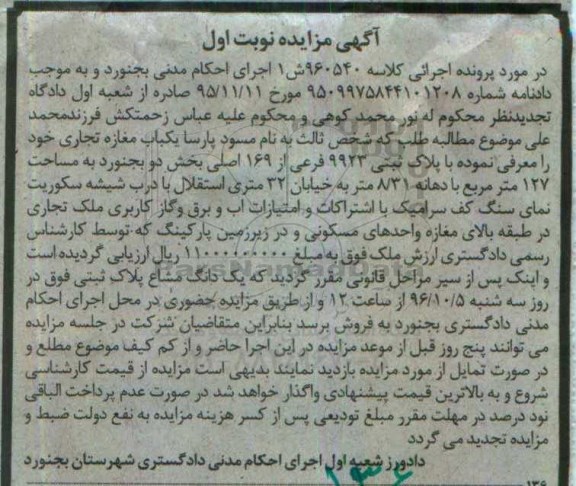 آگهی مزایده نوبت اول
در مورد پرونده اجرائی کلاسه ۹۶۰۵۴۰ش۱ اجرای احکام مدنی بجنورد و به موجب
دادنامه شماره ۹۵۰۹۹۷۵۸۴۴۱۰۱۲۰۸ مورخ ۹۵/۱۱/۱۱ صادره از شعبه اول دادگاه
تجدیدنظر محکوم له نور محمد کوهی و محکوم علیه عباس زحمتکش فرزندمحمد
علی موضوع مطالبه طلب که شخص ثالث به نام مسود پارسا یکباب مغازه تجاری خود
را معرفی نموده با پلاک ثبتی ۹۹۲۳ فرعی از ۱۶۹ اصلی بخش دو بجنورد به مساحت
۱۲۷ متر مربع با دهانه ۸/۳۱ متر به خیابان ۳۲ متری استقلال با درب شیشه سکوریت
نمای سنگ کف سرامیک با اشتراکات و امتیازات اب و برق وگاز کاربری ملک تجاری
در طبقه بالای مغازه واحدهای مسکونی و در زیرزمین پارکینگ که توسط کارشناس
رسمی دادگستری ارزش ملک فوق به مبلغ ۱۱۰۰۰۰۰۰۰۰۰ ریال ارزیابی گردیده است
و اینک پس از سیر مراحل قانونی مقرر گردید که یک دانگ مشاع پلاک ثبتی فوق در
روز سه شنبه ۹۶/۱۰/۵ از ساعت ۱۲ و از طریق مزایده حضوری در محل اجرای احکام
مدنی دادگستری بجنورد به فروش برسد بنابراین متقاضیان شرکت در جلسه مزایده
می توانند پنج روز قبل از موعد مزایده در این اجرا حاضر و از کم کیف موضوع مطلع و
در صورت تمایل از مورد مزایده بازدید نمایند بدیهی است مزایده از قیمت کارشناسی
شروع و به بالاترین قیمت پیشنهادی واگذار خواهد شد در صورت عدم پرداخت الباقی
نود درصد در مهلت مقرر مبلغ تودیعی پس از کسر هزینه مزایده به نفع دولت ضبط و
مزایده تجدید می گردد
دادورز شعبه اول اجرای احکام مدنی دادگستری شهرستان بجنورد